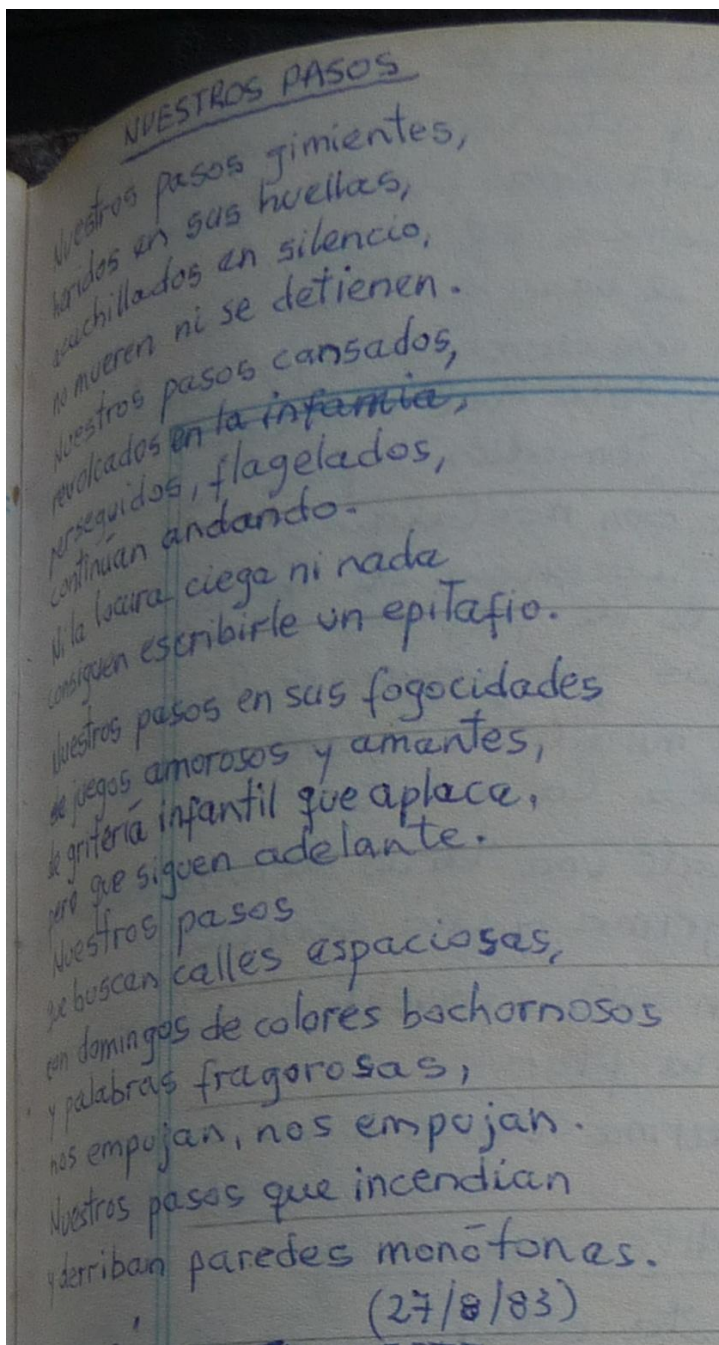 NUESTROS PASOS
Nuestros pasos gimientes,
heridos en sus huellas,
acuchillados en silencio,
no mueren ni se detienen.
Nuestros pasos cansados,
revolcados en la infamia,
perseguidos, flagelados,
continúan andando.
Ni la locura ciega ni nada
consiguen escribirle un epitafio.
Nuestros pasos en sus fogocidades
de juegos amorosos y amantes,
de gritería infantil que aplaca,
pero que siguen adelante.
Nuestros pasos
que buscan calles espaciosas,
con domingos de colores bochornosos
y palabras fragorosas,
nos empujan, nos empujan.
Nuestros pasos que incendian
y derriban paredes monótonas.
(27/8/83)